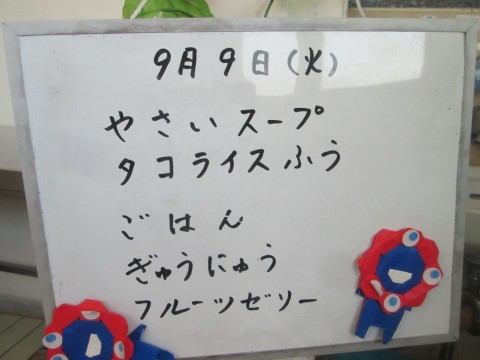 9月9日(火)
やさいスープ
タコライスふう
ごはん
ぎゅうにゅう
フルーツゼリー